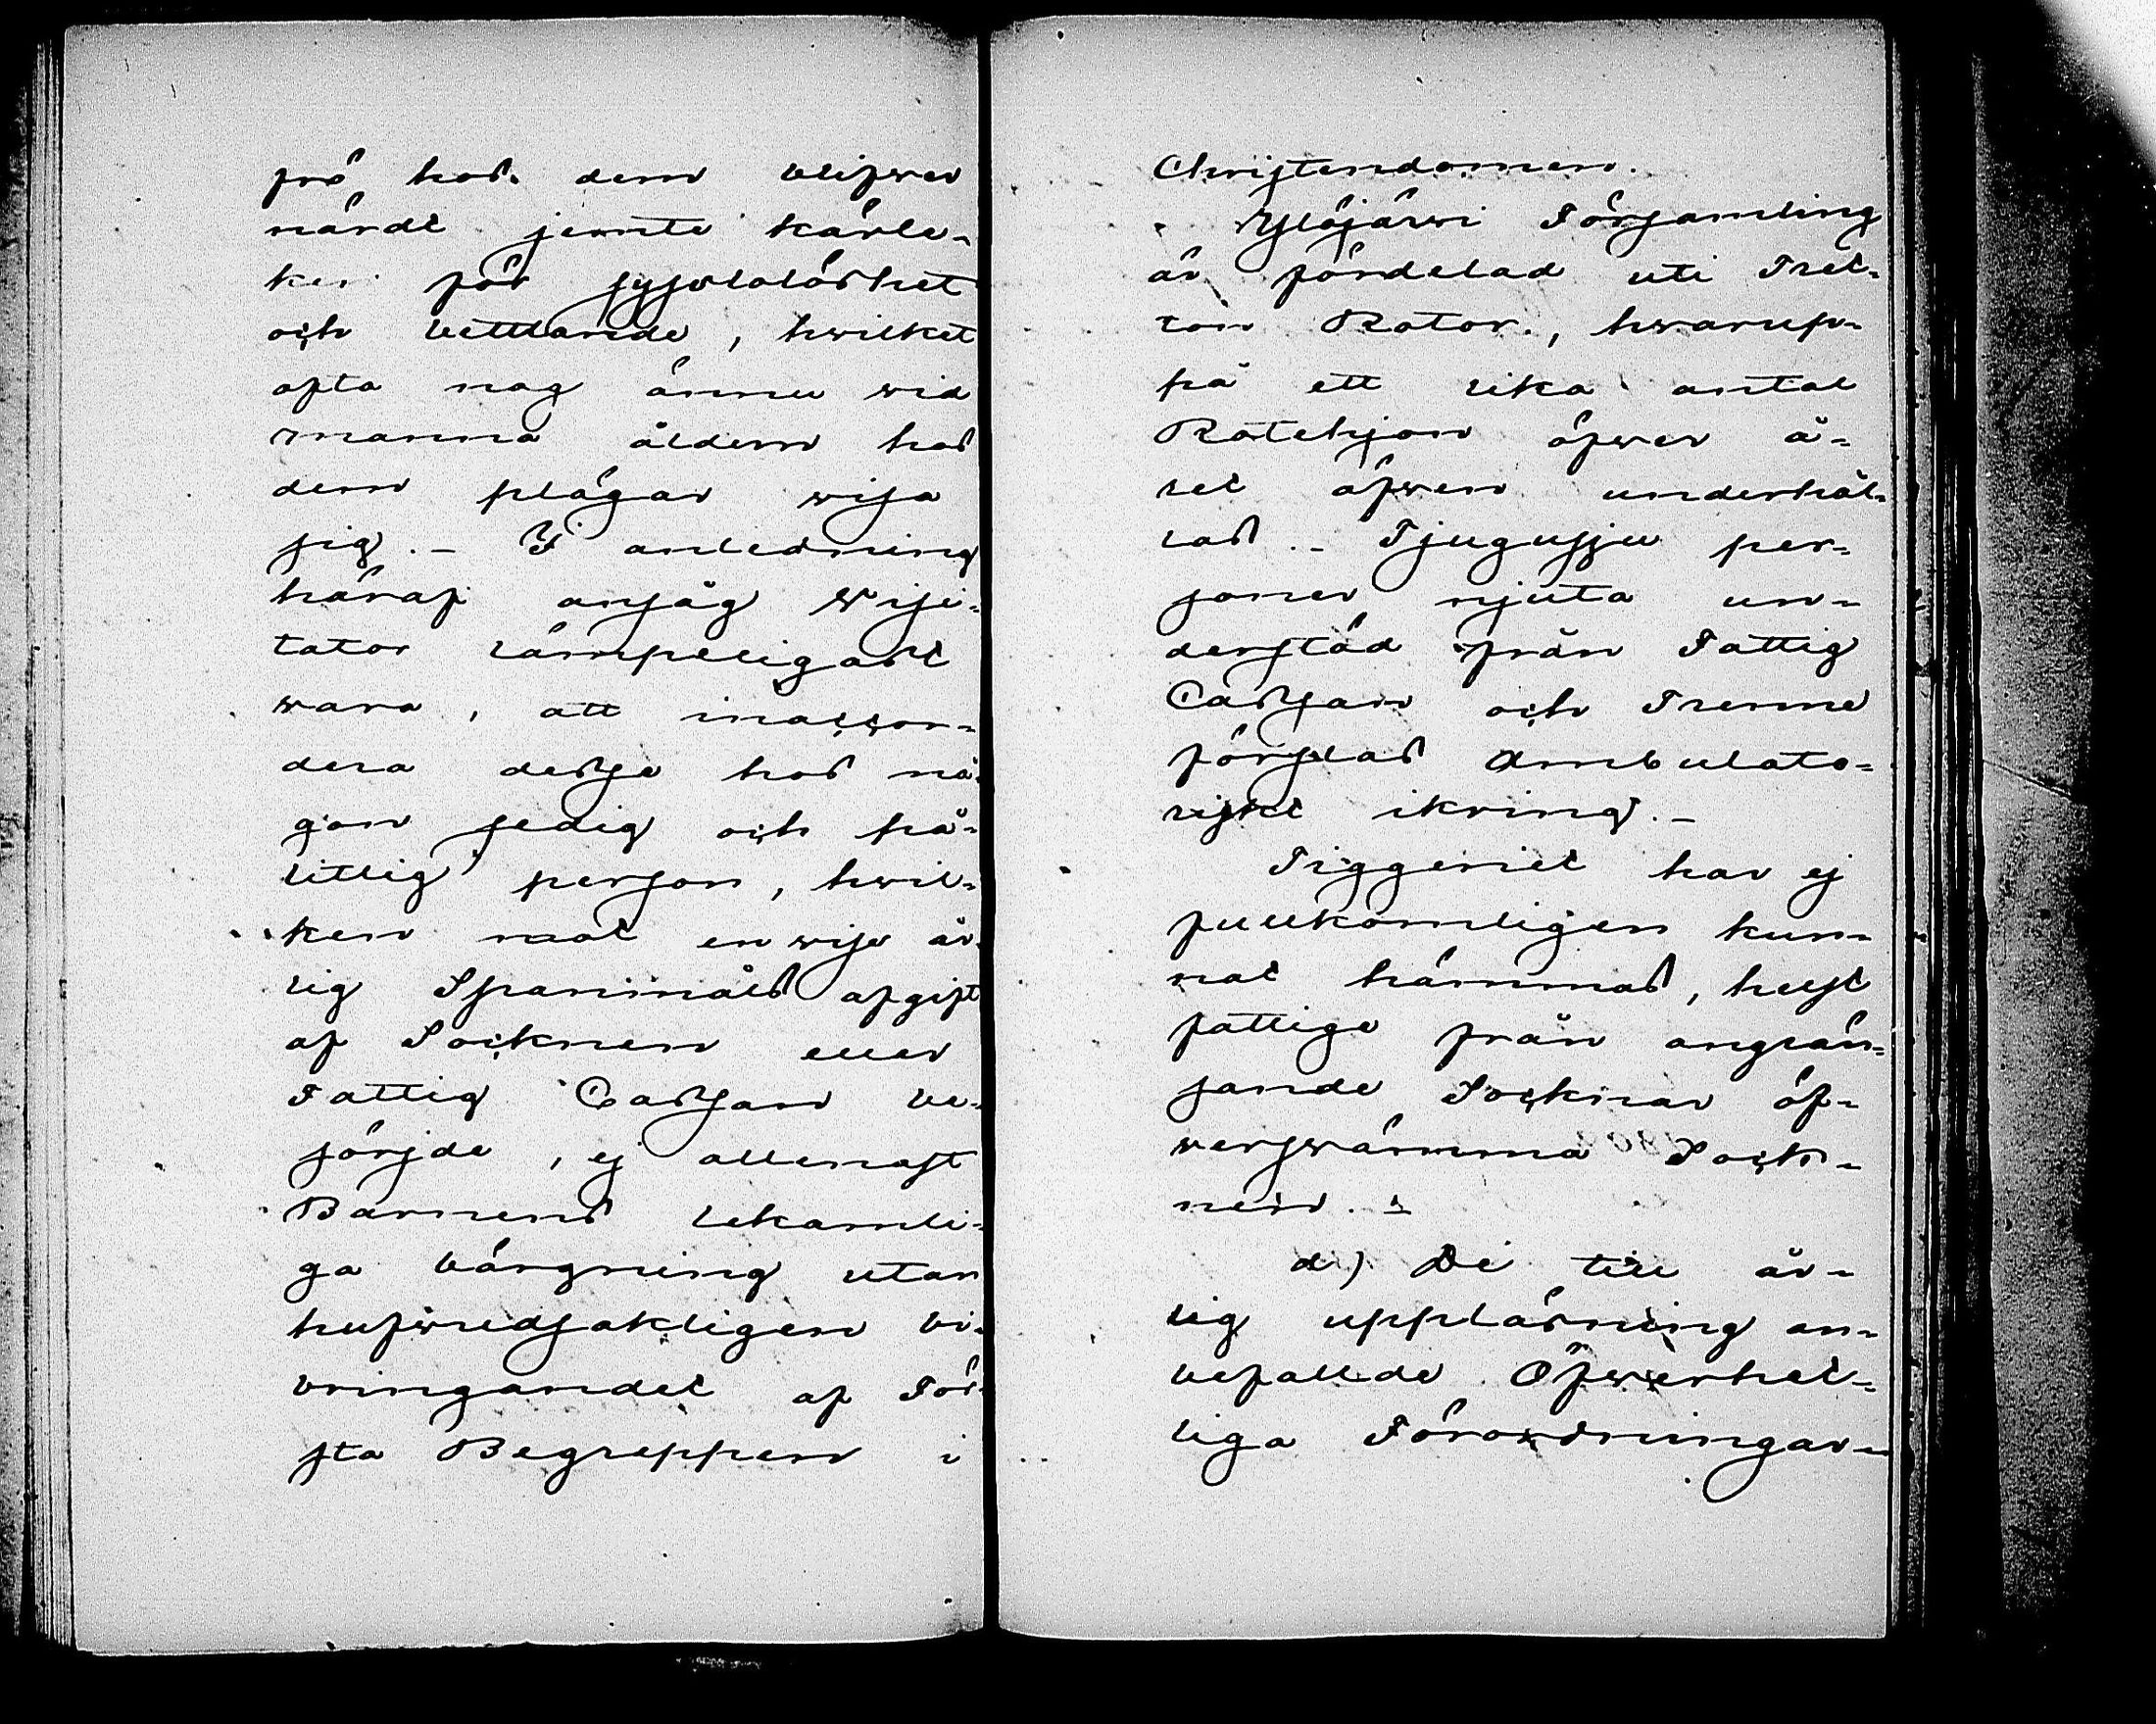 frö hos dem blifwer
närdt jemte kärle-
ken för sysslolöshet
och bettlande, hwilket
ofta nog ännu wid
manna åldern hos
dem plägar wisa
sig. - I anledning
häraf ansåg Wisi-
tator lämpeligast
wara, att inaccor-
dera desse hos nå-
gon sedig och på-
litlig person, hwil-
ken mot en wiss år-
lig Spanmåls afgift
af Socknen eller
Fattig Cassan be-
sörjde, ej allenast
Barnens lekamli-
ga bärgning utan
hufwudsakligen bi-
bringandet af För-
sta Begreppen i
Christendomen.
Ylöjärwi Församling
är fördelad uti Tret-
ton Rotor, hwarup-
på ett lika antal
Rotehjon öfwer å-
ret äfwen underhål-
las. - Tjugusju per-
soner njuta un-
derstöd från Fattig
Cassan och Trenne
förslas Ambulato-
riskt ikring. -
Tiggeriet har ej
fullkomligen kun-
nat hämmas, helst
fattige från angrän-
sande Socknar öf-
wersvämma Sock-
nen. -
d) De till år-
lig uppläsning an-
befallde Öfwerhet-
liga Förordningar